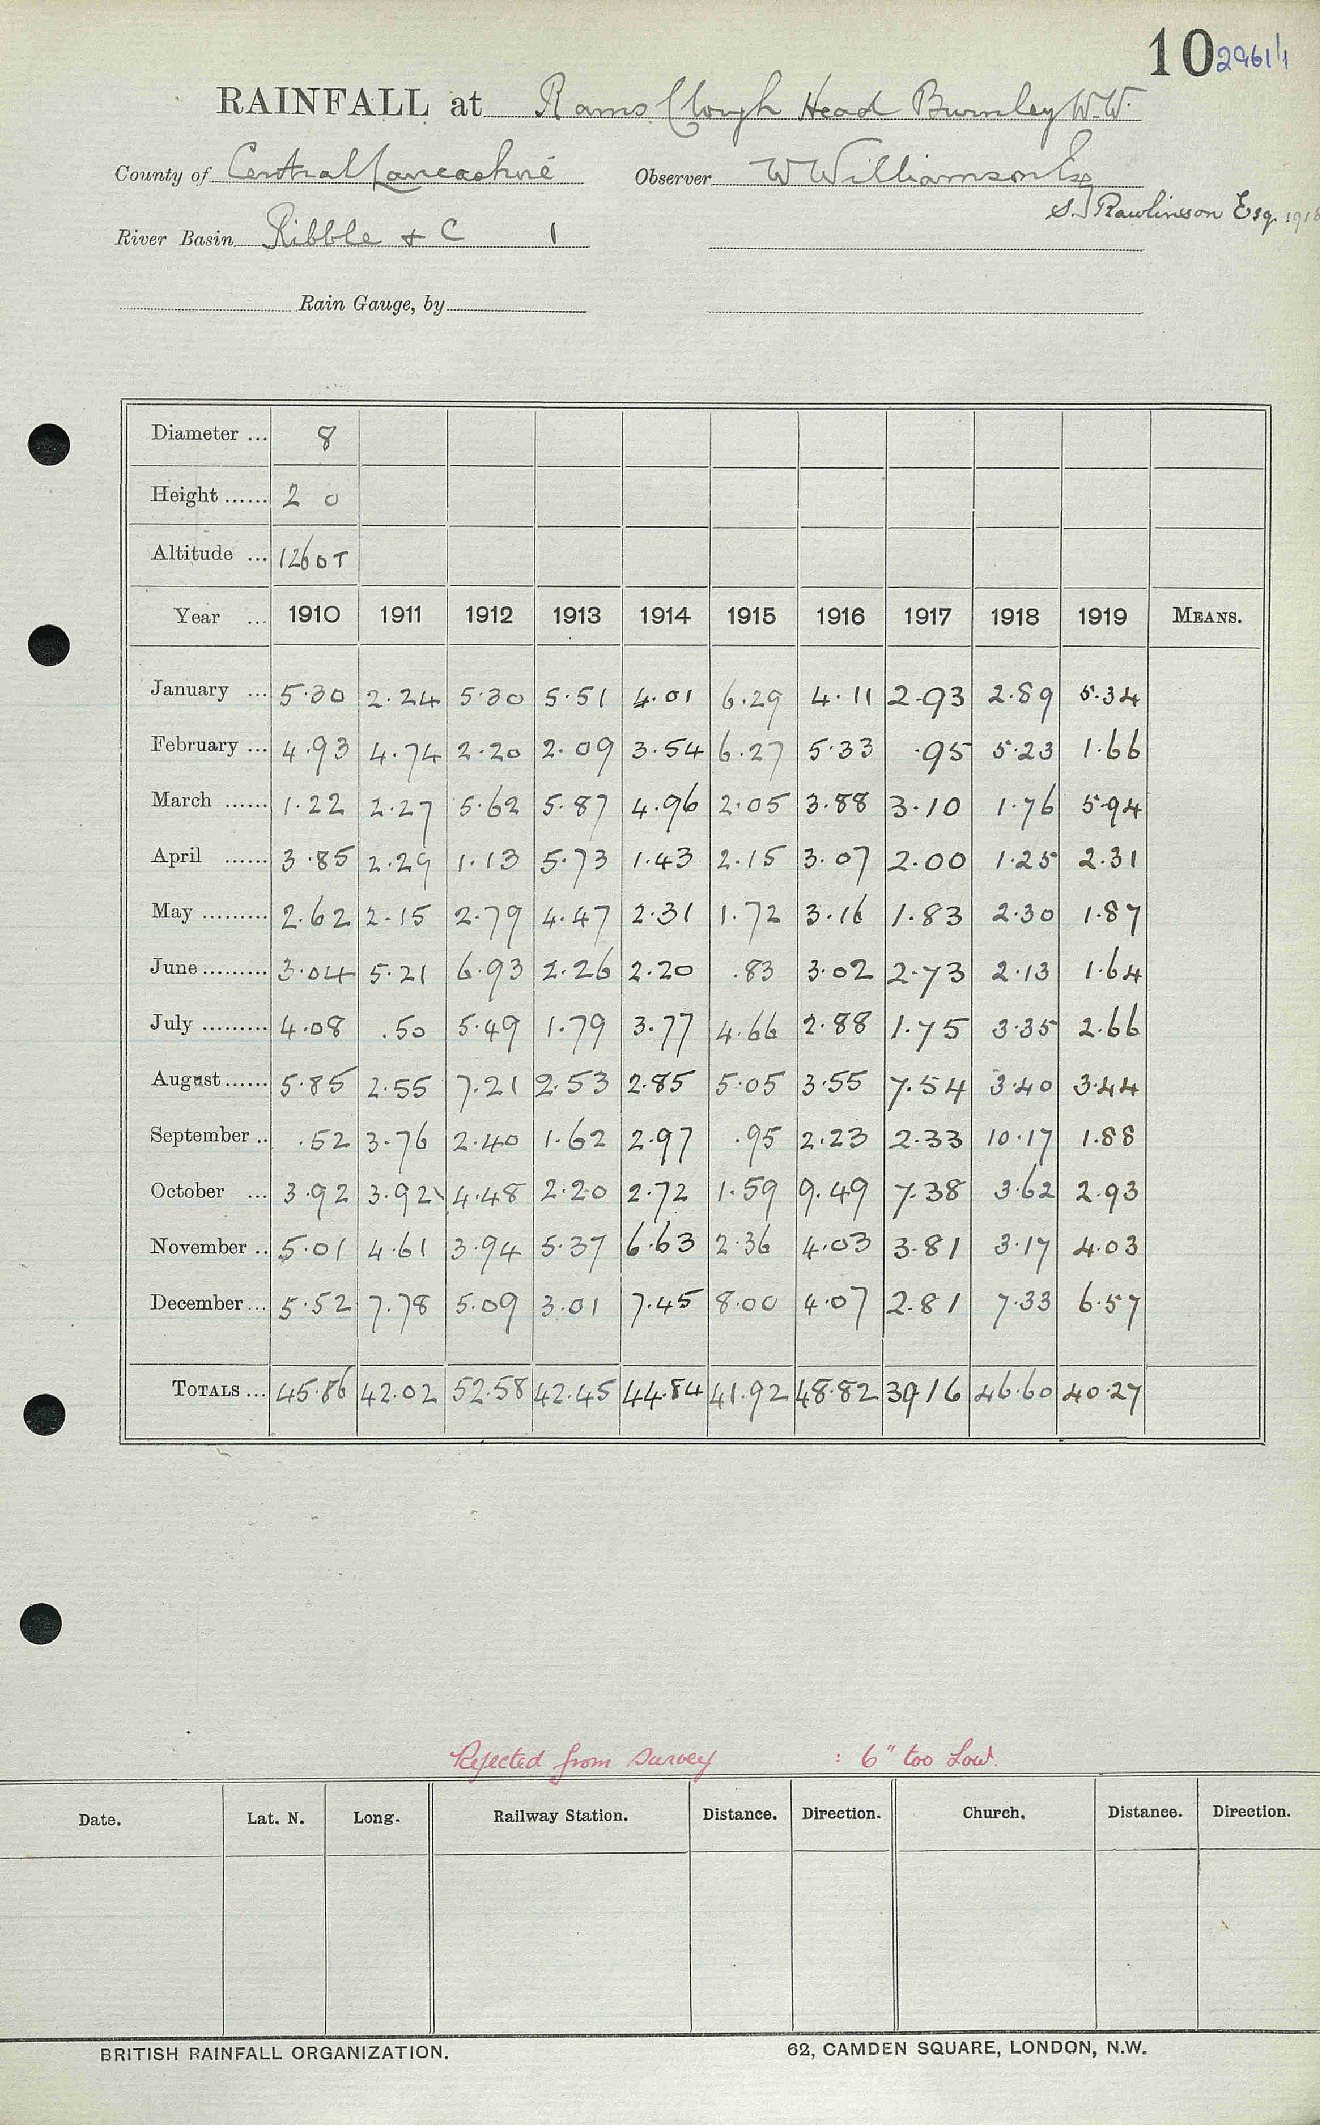 10 2961/1
RAINFALL at Rams Clough Head Burnley W.W.
County of Central Lancashire Observer W Williamson Esq
S. J Rawlinson Esq. 1918
River Basin Ribble & C 1
Rain Gauge, by
Diameter ... 8
Height ...... 2 0
Altitude ... 1260 T
Year ... 1910 1911 1912 1913 1914 1915 1916 1917 1918 1919 MEANS.
January ... 5.30 2.24 5.30 5.51 4.01 6.29 4.11 2.93 2.89 5.34
February ... 4.93 4.74 2.20 2.09 3.54 6.27 5.33 .95 5.23 1.66
March ...... 1.22 2.27 5.62 5.87 4.96 2.05 3.88 3.10 1.76 5.94
April ...... 3.85 2.29 1.13 5.73 1.43 2.15 3.07 2.00 1.25 2.31
May ......... 2.62 2.15 2.79 4.47 2.31 1.72 3.16 1.83 2.30 1.87
June ......... 3.04 5.21 6.93 2.26 2.20 .83 3.02 2.73 2.13 1.64
July ......... 4.08 .50 5.49 1.79 3.77 4.66 2.88 1.75 3.35 2.66
August ...... 5.85 2.55 7.21 2.53 2.85 5.05 3.55 7.54 3.40 3.44
September .. .52 3.76 2.40 1.62 2.97 .95 2.23 2.33 10.17 1.88
October ... 3.92 3.92 4.48 2.20 2.72 1.59 9.49 7.38 3.62 2.93
November .. 5.01 4.61 3.94 5.37 6.63 2.36 4.03 3.81 3.17 4.03
December ... 5.52 7.78 5.09 3.01 7.45 8.00 4.07 2.81 7.33 6.57
TOTALS ... 45.86 42.02 52.58 42.45 44.84 41.92 48.82 39.16 46.60 40.27
Rejected from survey : 6" too low.
Date. Lat. N. Long. Railway Station. Distance. Direction. Church. Distance. Direction.
BRITISH RAINFALL ORGANIZATION. 62, CAMDEN SQUARE, LONDON, N.W.